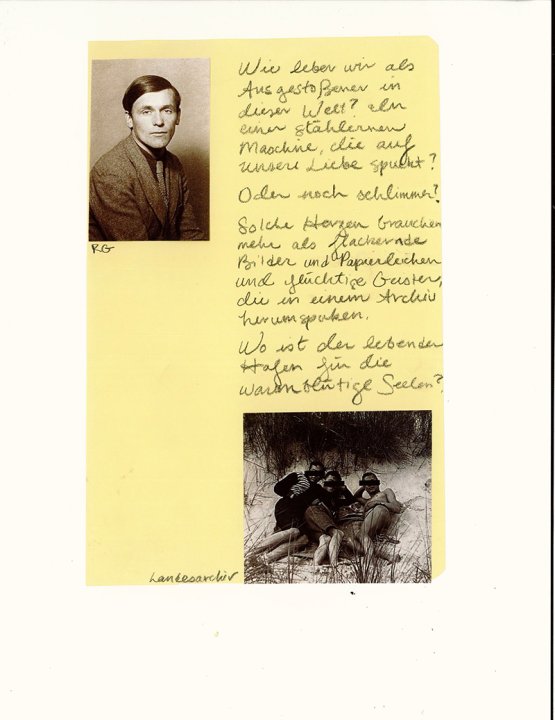 Wie leben wir als
Ausgestoßener in
dieser Welt? In
einer stählernen
Maschine, die auf
unsere Liebe spuckt?
Oder noch schlimmer?
Solche Herzen brauchen
mehr als flackernde
Bilder und Papierleichen
und flüchtige Geister,
die in einem Archiv
herumspuken.
Wo ist der lebender
Hafen für die
warmblütige Seelen?
RG
Landesarchiv